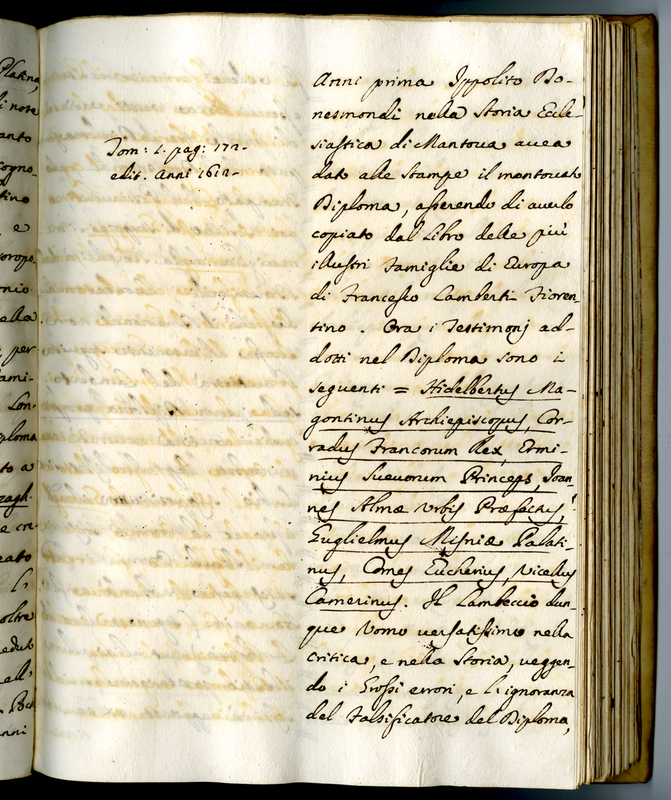 Platina,
Tom: 1. pag: 172.
edit. Anni 1612.
Anni prima Ippolito Do-
nesmondi nella Storia Eccle-
siastica di Mantova avea
dato alle Stampe il mantovan
Diploma, asserendo di averlo
copiato dal Libro delle più
illustri Famiglie di Europa
di Francesco Lamberti Fioren
tino. Ora i Testimonj ad-
dotti nel Diploma sono i
seguenti = Hidelbertus Ma-
gontinus Archiepiscopus, Cor-
radus Francorum Rex, Ermi-
nius Suevorum Princeps, Joan
nes Almæ Urbis Præfectus,
Guglielmus Misniæ Palati-
nus, Comes Eucherius, Vicedus
Camerinus. Il Lambeccio dun
que Uomo versatissimo nella
critica, e nella Storia, veggen-
do i Grossi errori, e l'ignoranza
del Falsificatore del Diploma,